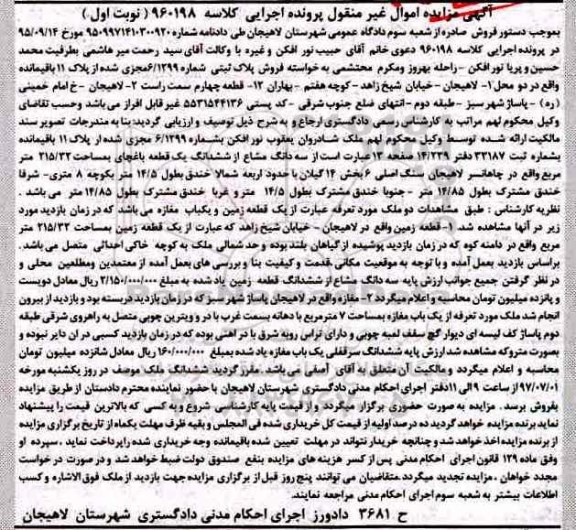 آگهی مزایده اموال غیر منقول پرونده اجرایی کلاسه ۹۶۰۱۹۸ ( نوبت اول )
بموجب دستور فروش صادره از شعبه سوم دادگاه عمومی شهرستان لاهیجان طی دادنامه شماره ۹۵۰۹۹۷۱۴۱۰۳۰۰۹۲۰ مورخ ۹۵/۰۹/۱۴
در پرونده اجرایی کلاسه ۹۶۰۱۹۸ دعوی خانم آقای حبیب نور افکن و غیره با وکالت آقای سید رحمت میر هاشمی بطرفیت محمد
حسین و پریا نور افکن - راحله بهروز ومکرم محتشمی به خواسته فروش پلاک ثبتی شماره ۶/۱۲۹۹ مجزی شده از پلاک ۱۱ باقیمانده
واقع در دو محل ۱- لاهیجان - خیابان شیخ زاهد - کوچه هفتم - بهاران ۱۲- قطعه چهارم سمت راست ۲- لاهیجان - خ امام خمینی
(ره) - پاساژ شهر سبز - طبقه دوم - انتهای ضلع جنوب شرقی - کد پستی ۵۵۳۱۵۴۴۱۳۶ غیر قابل افراز می باشد وحسب تقاضای
وکیل محکوم لهم مراتب به کارشناس رسمی دادگستری ارجاع و به شرح ذیل توصیف و ارزیابی گردید: بنا به مندرجات تصویر سند
مالکیت ارائه شده توسط وکیل محکوم لهم ملک شادروان یعقوب نور افکن بشماره ۶/۱۲۹۹ مجزی شده از پلاک ۱۱ باقیمانده
بشماره ثبت ۳۳۱۸۷ دفتر ۱۴/۲۳۹ صفحه ۱۳ عبارت است از سه دانگ مشاع از ششدانگ یک قطعه باغچای بمساحت ۲۱۵/۳۲ متر
مربع واقع در چاهانسر لاهیجان سنگ اصلی ۶ بخش ۱۴ گیلان با حدود اربعه شمالا خندق بطول ۱۴/۵ متر بکوچه ۸ متری - شرقا
خندق مشترک بطول ۱۴/۸۵ متر - جنوبا خندق مشترک بطول ۱۴/۵ متر و غربا خندق مشترک بطول ۱۴/۸۵ متر می باشد .
نظریه کارشناس : طبق مشاهدات دو ملک مورد تعرفه عبارت از یک قطعه زمین و یکباب مغازه می باشد که در زمان بازدید مورد
زیر در آنها مشاهده شد. ۱- قطعه زمین واقع در لاهیجان - خیابان شیخ زاهد که عبارت از یک قطعه زمین بمساحت ۲۱۵/۳۲ متر
مربع واقع در دامنه کوه که در زمان بازدید پوشیده از گیاهان بلند بوده و حد شمالی ملک به کوچه خاکی احداثی متصل می باشد .
براساس بازدید بعمل آمده و با توجه به موقعیت مکانی ،قدمت و کیفیت بنا و بررسی های بعمل آمده از معتمدین ومطلعین محلی و
در نظر گرفتن جمیع جوانب ارزش پایه سه دانگ مشاع از ششدانگ قطعه زمین یاد شده به مبلغ ۲/۱۵۰/۰۰۰/۰۰۰ ریال معادل دویست
و پانزده میلیون تومان محاسبه و اعلام میگردد ۲- مغازه واقع در لاهیجان پاساژ شهر سبز که در زمان بازدید دربسته بود و بازدید از بیرون
انجام شد ملک مورد تعرفه از یک باب مغازه بمساحت ۷ مترمربع با دهانه بسمت غرب با در و ویترین چوبی متصل به راهروی شرقی طبقه
دوم پاساژ کف لیسه ای دیوار گچ سقف لمبه چوبی و دارای تراس روبه شرق با در اهنی بوده که در زمان بازدید کسبی در ان دایر نبوده و
بصورت متروکه مشاهده شد ارزش پایه ششدانگ سرقفلی یک باب مغازه یاد شده بمبلغ ۱۶۰/۰۰۰/۰۰۰ ریال معادل شانزده میلیون تومان
محاسبه و اعلام میگردد و مالکیت آن متعلق به آقای آصفی می باشد. مقرر گردید ششدانگ ملک موصف در روز یکشنبه مورخه
۹۷/۰۷/۰۱ از ساعت ۹ الی ۱۱ دفتر اجرای احکام مدنی دادگستری شهرستان لاهیجان با حضور نماینده محترم دادستان از طریق مزایده
بفروش برسد . مزایده به صورت حضوری برگزار میگردد و از قیمت پایه کارشناسی شروع و به کسی که بالاترین قیمت را پیشنهاد
نماید برنده مزایده خواهد گردید ده درصد اولیه از قیمت کل خریداری شده فی المجلس و بقیه ظرف مهلت یکماه از تاریخ برگزاری مزایده
از برنده مزایده اخذ خواهد شد و چنانچه خریدار نتواند در مهلت تعیین شده باقیمانده وجه خریداری شده را پرداخت نماید ، سپرده او
وفق ماده ۱۲۹ قانون اجرای احکام مدنی پس از کسر هزینه های مزایده بنفع صندوق دولت ضبط خواهد شد و در صورت در خواست
مجدد خواهان ، مزایده تجدید میگردد. متقاضیان می توانند پنج روز قبل از برگزاری مزایده جهت بازدید از ملک فوق الاشاره و کسب
اطلاعات بیشتر به شعبه سوم اجرای احکام مدنی مراجعه نمایند.
ح ۳۶۸۱ دادورز اجرای احکام مدنی دادگستری شهرستان لاهیجان